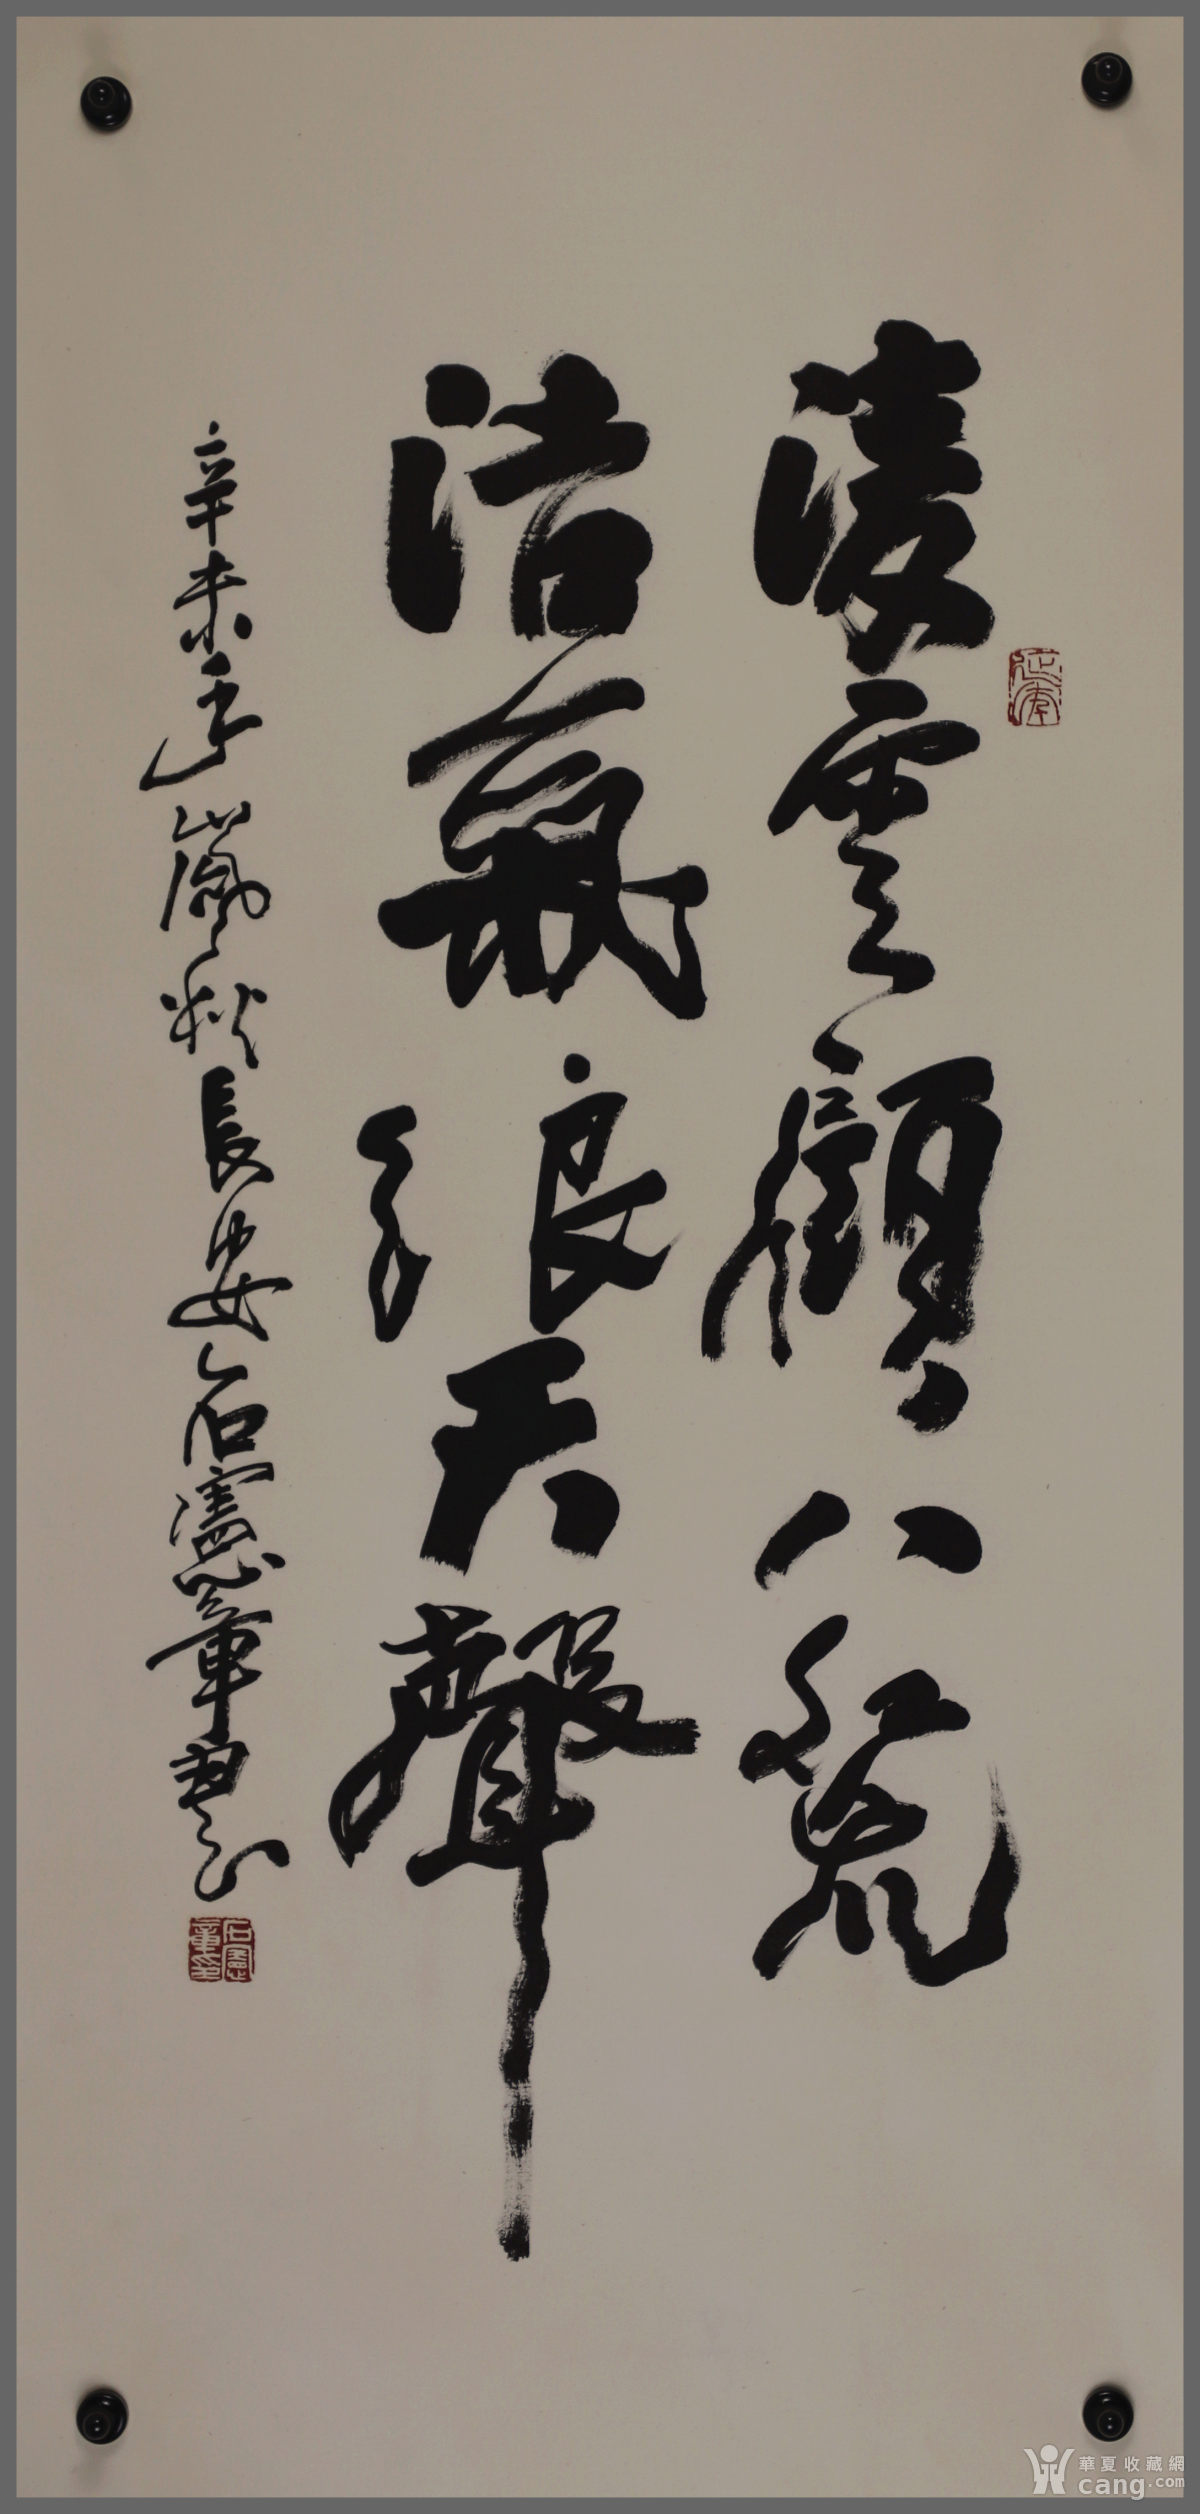 凌雲顧八荒
浩氣琅天聲
辛未年嵐秋長安石憲章書
延年
石憲章印
華夏收藏網
cang.com